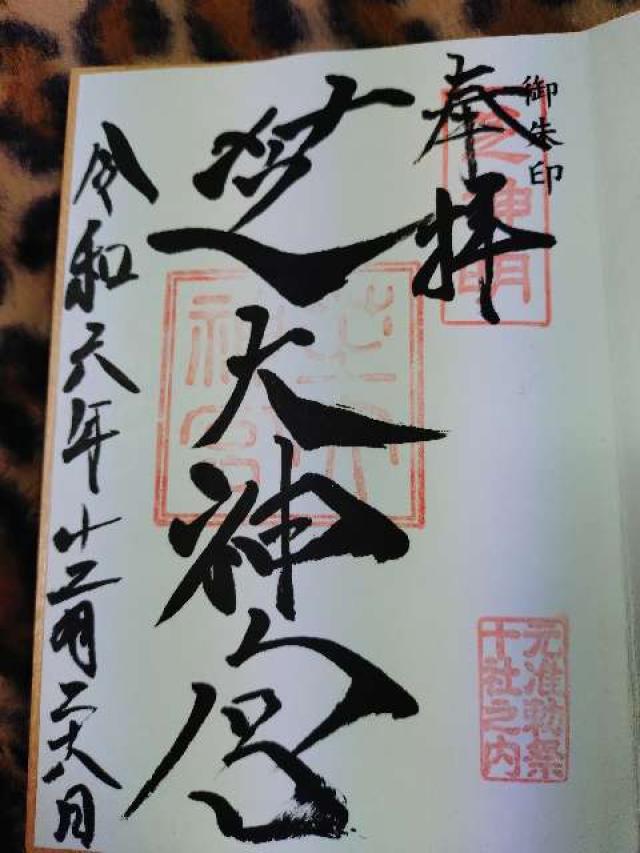 御朱印
奉拝
芝大神宮
令和六年十二月二十八日
芝神明
芝大神宮
元准勅祭
十社之内